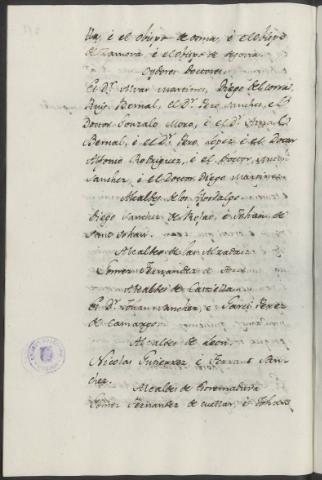 lla, é el obispo de osma, é el obispo
de Zamora, é el obispo de Segovia.
Oydores Doctores.
El D.r Alvar martines, Diego de Corral
Ruy Bernal, el D.r Pero Sanches, é el
Doctor Gonzalo Moro, é el D.r
Bernal, é el D.r Pero Lopez é el Doctor
Antonio Rodriguez, é el Doctor
Sanchez, é el Doctor Diego Martines.
Alcaldes de los Hijosdalgo
Diego Sanchez de Rojas, é Johan de
Sant Johan.
Alcaldes de las Alzadas
Gomez Fernandez de
Alcaldes de Castiella
El D.r Johan Sanchez, e Garci Perez
de Camargo.
Alcaldes de Leon.
Nicolas Gutierrez é Ferrant San-
chez.
Alcaldes de Extremadura
Gomez Fernandez de Cuellar, é Johan